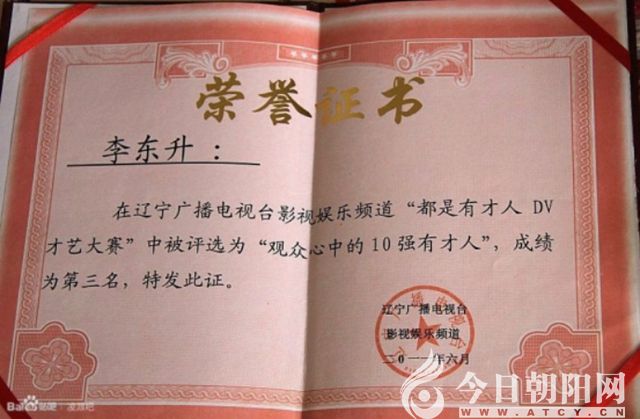 荣誉证书
李东升：
在辽宁广播电视台影视娱乐频道“都是有才人 DV
才艺大赛”中被评选为“观众心中的10强有才人”，成绩
为第三名，特发此证。
辽宁广播电视台
影视娱乐频道
二〇一一年六月
Bai贴吧 凌源吧
今日朝阳网
WWW.ATCY.CN